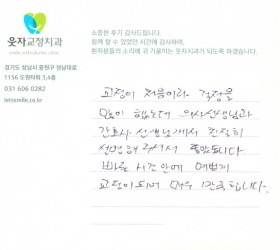 웃자교정치과
smile orthodontic clinic
경기도 성남시 중원구 성남대로
1156 도원타워 3,4층
031 606 0282
letssmile.co.kr
소중한 후기 감사드립니다.
함께 할 수 있었던 시간에 감사하며,
환자분들의 소리에 귀 기울이는 웃자치과가 되도록 하겠습니다.
교정이 처음이라 걱정을
많이 했는데 의사선생님과
간호사 선생님께서 친절히
설명해 주셔서 좋았습니다
빠른 시간안에 예쁘게
교정이되어 매우 만족합니다.